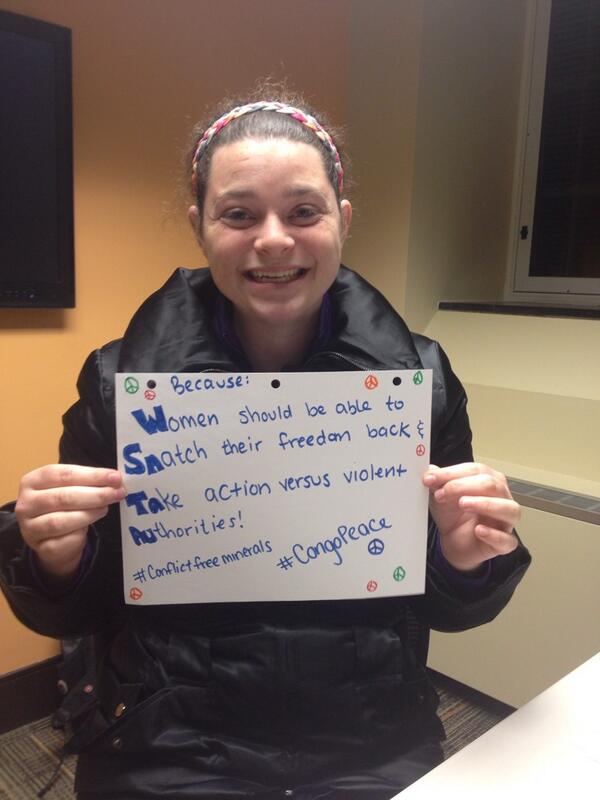 Because:
Women should be able to
Snatch their freedom back &
Take action versus violent
Authorities!
#Conflictfreeminerals #CongoPeace